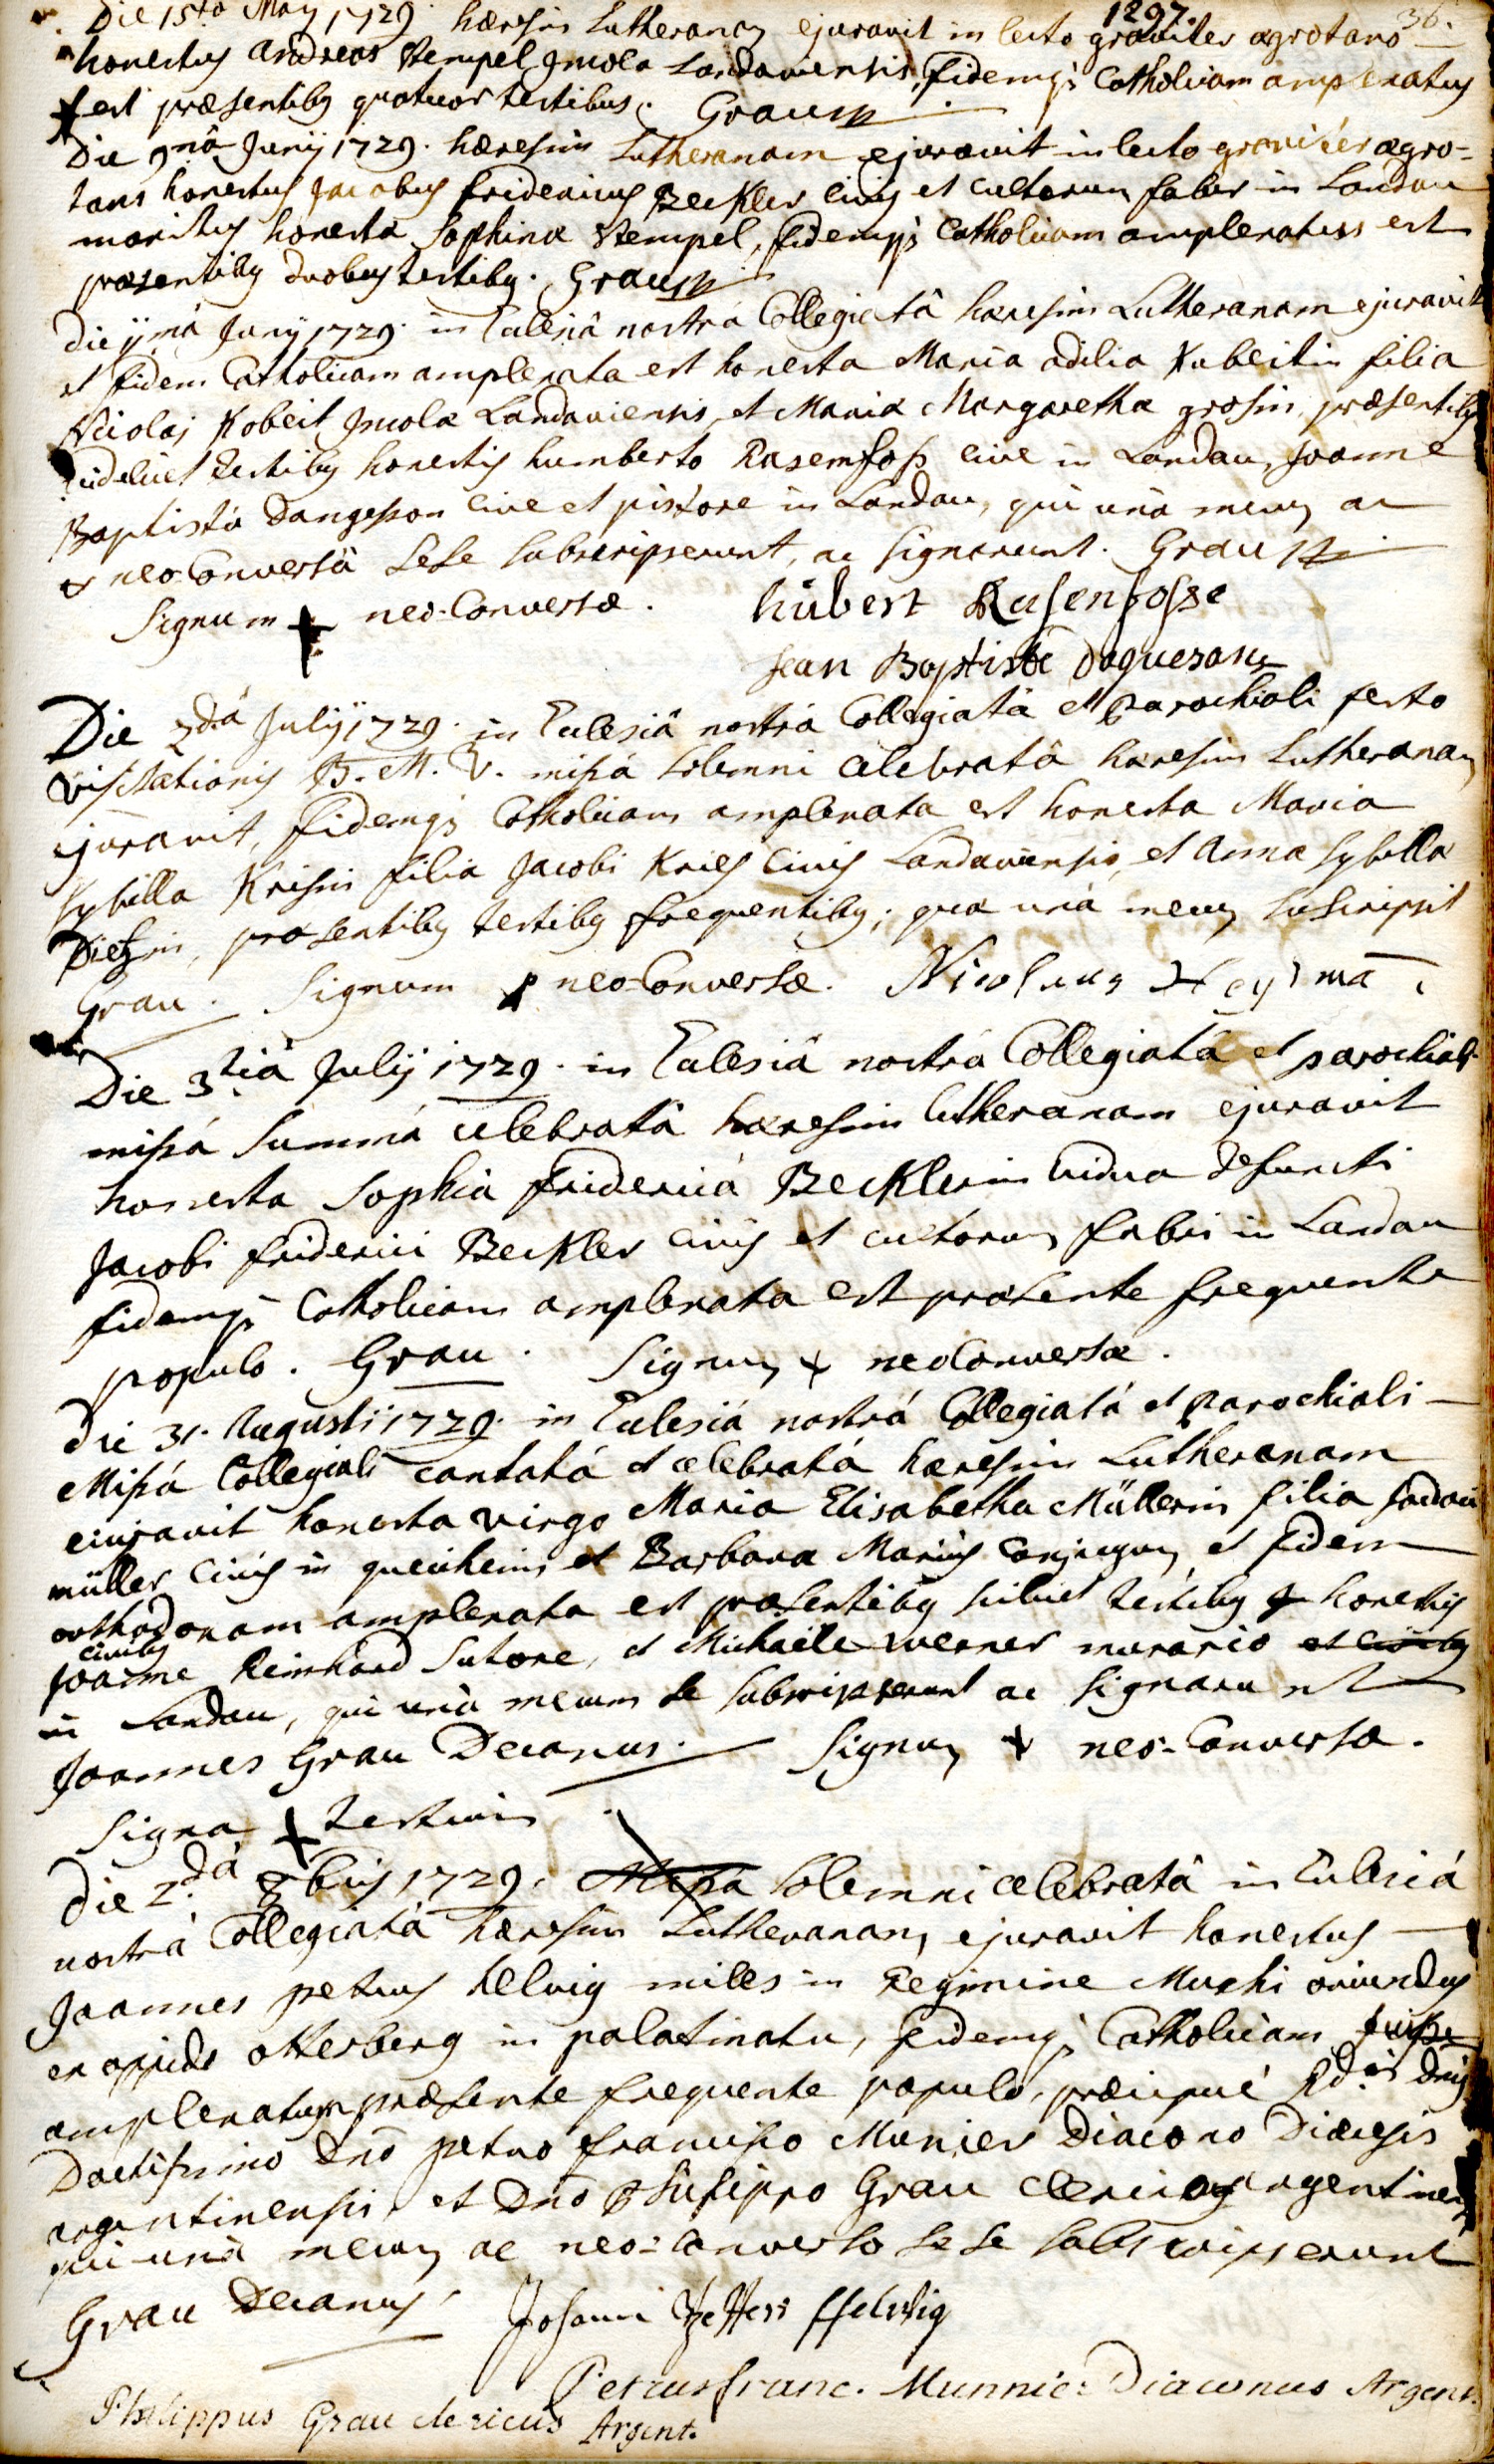 1297. 36.
Die 15ta May 1729. hæresin Lutheranam ejuravit in lecto graviter ægrotans
honestus Andreas Stempel Incola Landaviensis, fidemq; Catholicam amplexatus
est præsentibq quatuor testibus. Grau
Die 9nâ Junij 1729. hæresin Lutheranam ejuravit in lecto graviter ægro-
tans honestus Jacobus fridericus Beckler civis et cultrorum faber in Landau
maritus honestæ Sophinæ Stempel, fidemq; Catholicam amplexatus est
præsentibq duobus testibq. Grau
die ijmâ Junij 1729. in Ecclesiâ nostrâ Collegiatâ hæresim Lutheranam ejuravit
et fidem Catholicam amplexata est honesta Maria odilia Kubeitin filia
Nicolaj Kobeit Incolæ Landaviensis, et Mariæ Margarethæ grosin, præsentibq
videlicet testibq honestis humberto Rasemfoss cive in Landau, Joanne
Baptistâ Dangesson cive et pistore in Landau, qui unâ mecum ac
neo-Conversâ sese subscripserunt, ac signarunt. Grau
Signum + neo-Conversæ. hübert Rasenfosse
Jean Baptiste Daguesans
Die 2dâ Julij 1729. in Ecclesiâ nostrâ Collegiatâ et Parochiali festo
visitationis B. M. V. missâ solemni celebratâ hæresim Lutheranam
ejuravit, fidemq; Catholicam amplexata est honesta Maria
Sybilla Krisin filia Jacobi Kries civis Landaviensis, et Annæ Sybillæ
Diezin, præsentibq testibq frequentibq; quæ unâ mecum subscripsit
Grau. Signum + neo-Conversæ. Nicolaus Heyimā
Die 3tiâ Julij 1729. in Ecclesiâ nostrâ Collegiatâ et parochiali
missâ summâ celebratâ hæresim lutheranam ejuravit
honesta Sophia fridericâ Becklerin vidua defuncti
Jacobi friderici Beckler civis et cultorum fabri in Landau
fidemq; Catholicam amplexata est præsente frequente
populo. Grau. Signum + neo Conversæ.
die 31. Augustij 1729. in Ecclesiâ nostrâ Collegiatâ et Parochiali
Missâ Collegiali cantatâ et celebratâ hæresim Lutheranam
eiuravit honesta virgo Maria Elisabetha Müllerin filia
müller civis in queicheim et Barbaræ Mariæ conjugum, et fidem
orthodoxam amplexata est præsentibq scilicet testibq honestis
civibq
Joanne Reinhard Sutore, et Michaële werner murario et civibq
in Landau, qui unâ mecum se subscripserunt ac signarunt
Joannes Grau Decanus. Signum + neo-Conversæ.
Signa + testium
die 2.dâ 8bris 1729. Missâ solemni celebratâ in Ecclesiâ
nostrâ Collegiatâ hæresim Lutheranam ejuravit honestus
Joannes petrus helvig miles in Regimine Muchi oriundus
ex oppido otterberg in palatinatu, fidemq; Catholicam fuisse
amplexatus præsente frequente populo, præcipuè Rdis Dnis
Doctissimo Dnō petro francisco Munier Diacono Diœcesis
argentinensis, et Dnō Philippo Grau clerico argentinensi
qui unâ mecum ac neo-converso sese subscripserunt
Grau Decanus Johann Petters Helwig
Petrus franc. Munnier Diaconus Argent.
Philippus Grau clericus Argent.